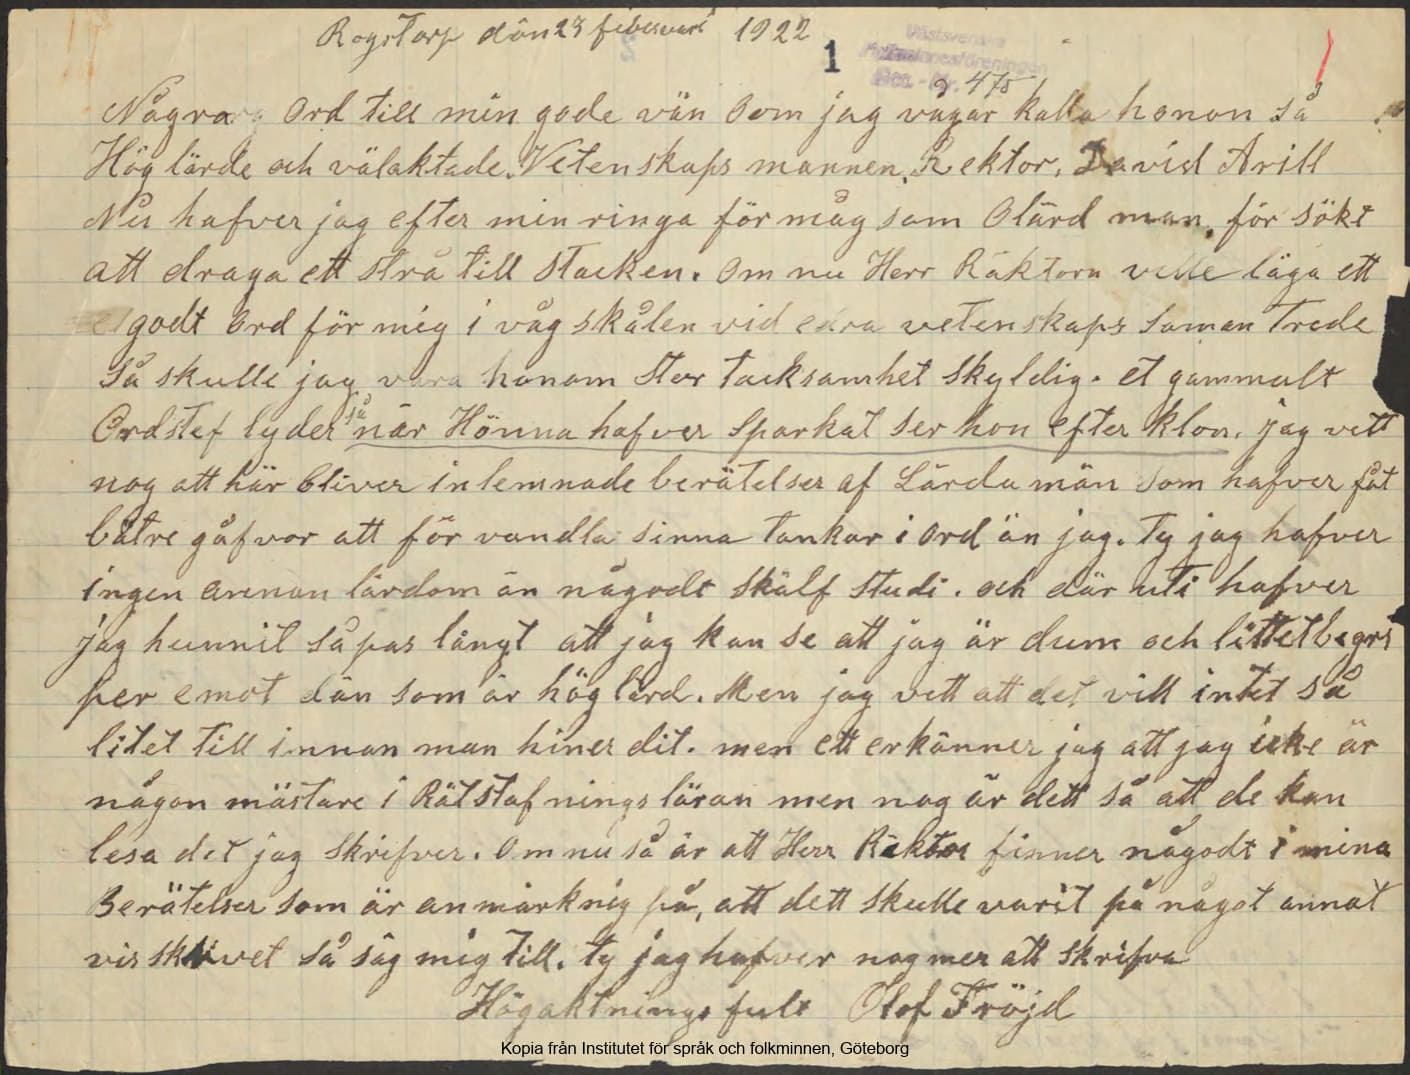 Rogstorp dän 23 februari 1922
1
Västsvenska
Folkminnesföreningen
Acc. - Nr. 475
Några Ord till min gode vän Som jag vågar kalla honon så
Hög lärde och välaktade. Vetenskaps mannen. Rektor. David Arill
Nu hafver jag efter min ringa för måg som Olärd man. för sökt
att draga ett strå till Stacken. Om nu Herr Räktorn ville läga ett
godt Ord för mig i våg skålen vid edra vetenskaps Saman Trede
Så skulle jag vara honom Stor tacksamhet Skyldig. et gammalt
Ordstef lyder så när Hönna hafver Sparkat ser hon efter klon. jag vett
nog att här bliver inlemnade berätelser af Lärda män Som hafver fåt
bätre gåfvor att för vandla sinna Tankar i Ord än jag. Ty jag hafver
ingen annan lärdom än någodt Skälf Studi. och där uti hafver
jag hunnit Så pas långt att jag kan se att jag är dum och littet begri
per emot dän som är hög lärd. Men jag vett att det vill intet så
litet till innan man hiner dit. men ett erkänner jag att jag icke är
någon mästare i Rätstafnings läran men nog är dett så att de kan
lesa det jag Skrifver. Om nu så är att Herr Räktor finner någodt i mina
Berätelser som är anmärknig på, att dett Skulle varit på något annat
vis skrivet Så säg mig Till. ty jag hafver nog mer att Skrifva
Högaktnings fult Olof Fröjd
Kopia från Institutet för språk och folkminnen, Göteborg